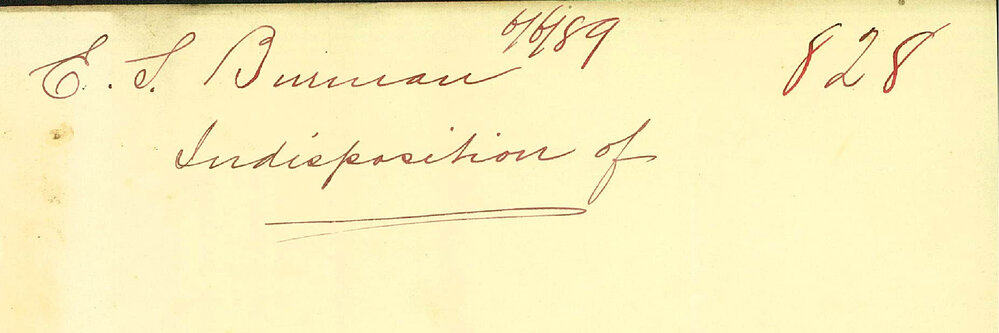 E. S. Burman 6/6/89 828
Indisposition of